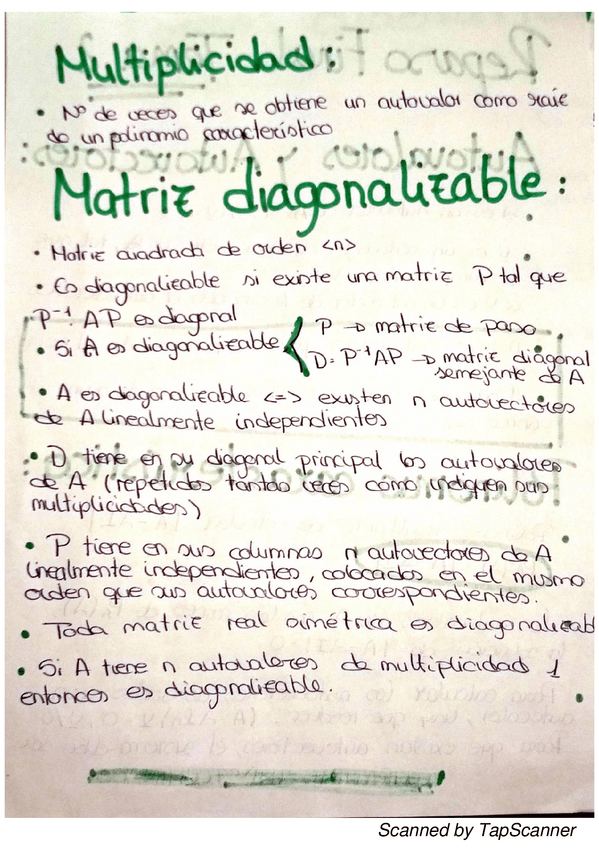 Multiplicidad:
• Nº de veces que se obtiene un autovalor como raíz
de un polinomio característico
Matriz diagonalizable:
• Matriz cuadrada de orden <n>
• Es diagonalizable si existe una matriz P tal que
P⁻¹·AP es diagonal
• Si A es diagonalizable { P → matriz de paso
D=P⁻¹AP → matriz diagonal
semejante de A
• A es diagonalizable <=> existen n autovectores
de A linealmente independientes
• D tiene en su diagonal principal los autovalores
de A (repetidos tantas veces como indiquen sus
multiplicidades)
• P tiene en sus columnas n autovectores de A
linealmente independientes, colocados en el mismo
orden que sus autovalores correspondientes.
• Toda matriz real simétrica es diagonalizabl
• Si A tiene n autovalores de multiplicidad 1
entonces es diagonalizable.
Scanned by TapScanner